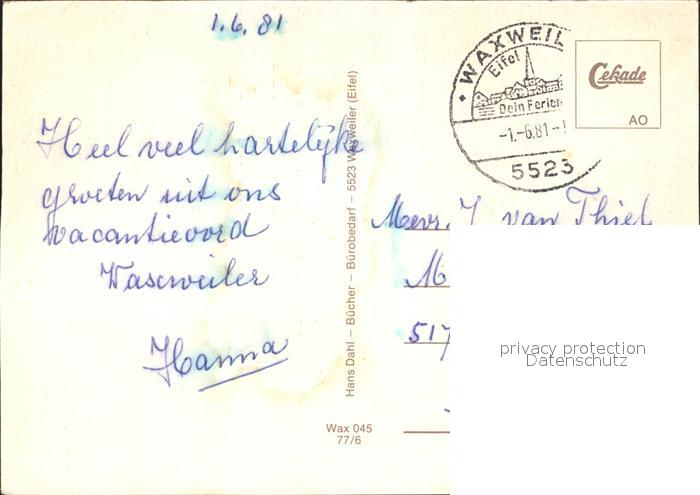 1.6.81
Heel veel hartelijke
groeten uit ons
vacantieoord
Waxweiler
Hanna
Hans Dahl – Bücher – Bürobedarf – 5523 Waxweiler (Eifel)
Wax 045
77/6
WAXWEIL
Eifel
Dein Ferien
-1.-6.81-
5523
Cekade
AO
Mevr. J. van Thiel
M
517
privacy protection
Datenschutz